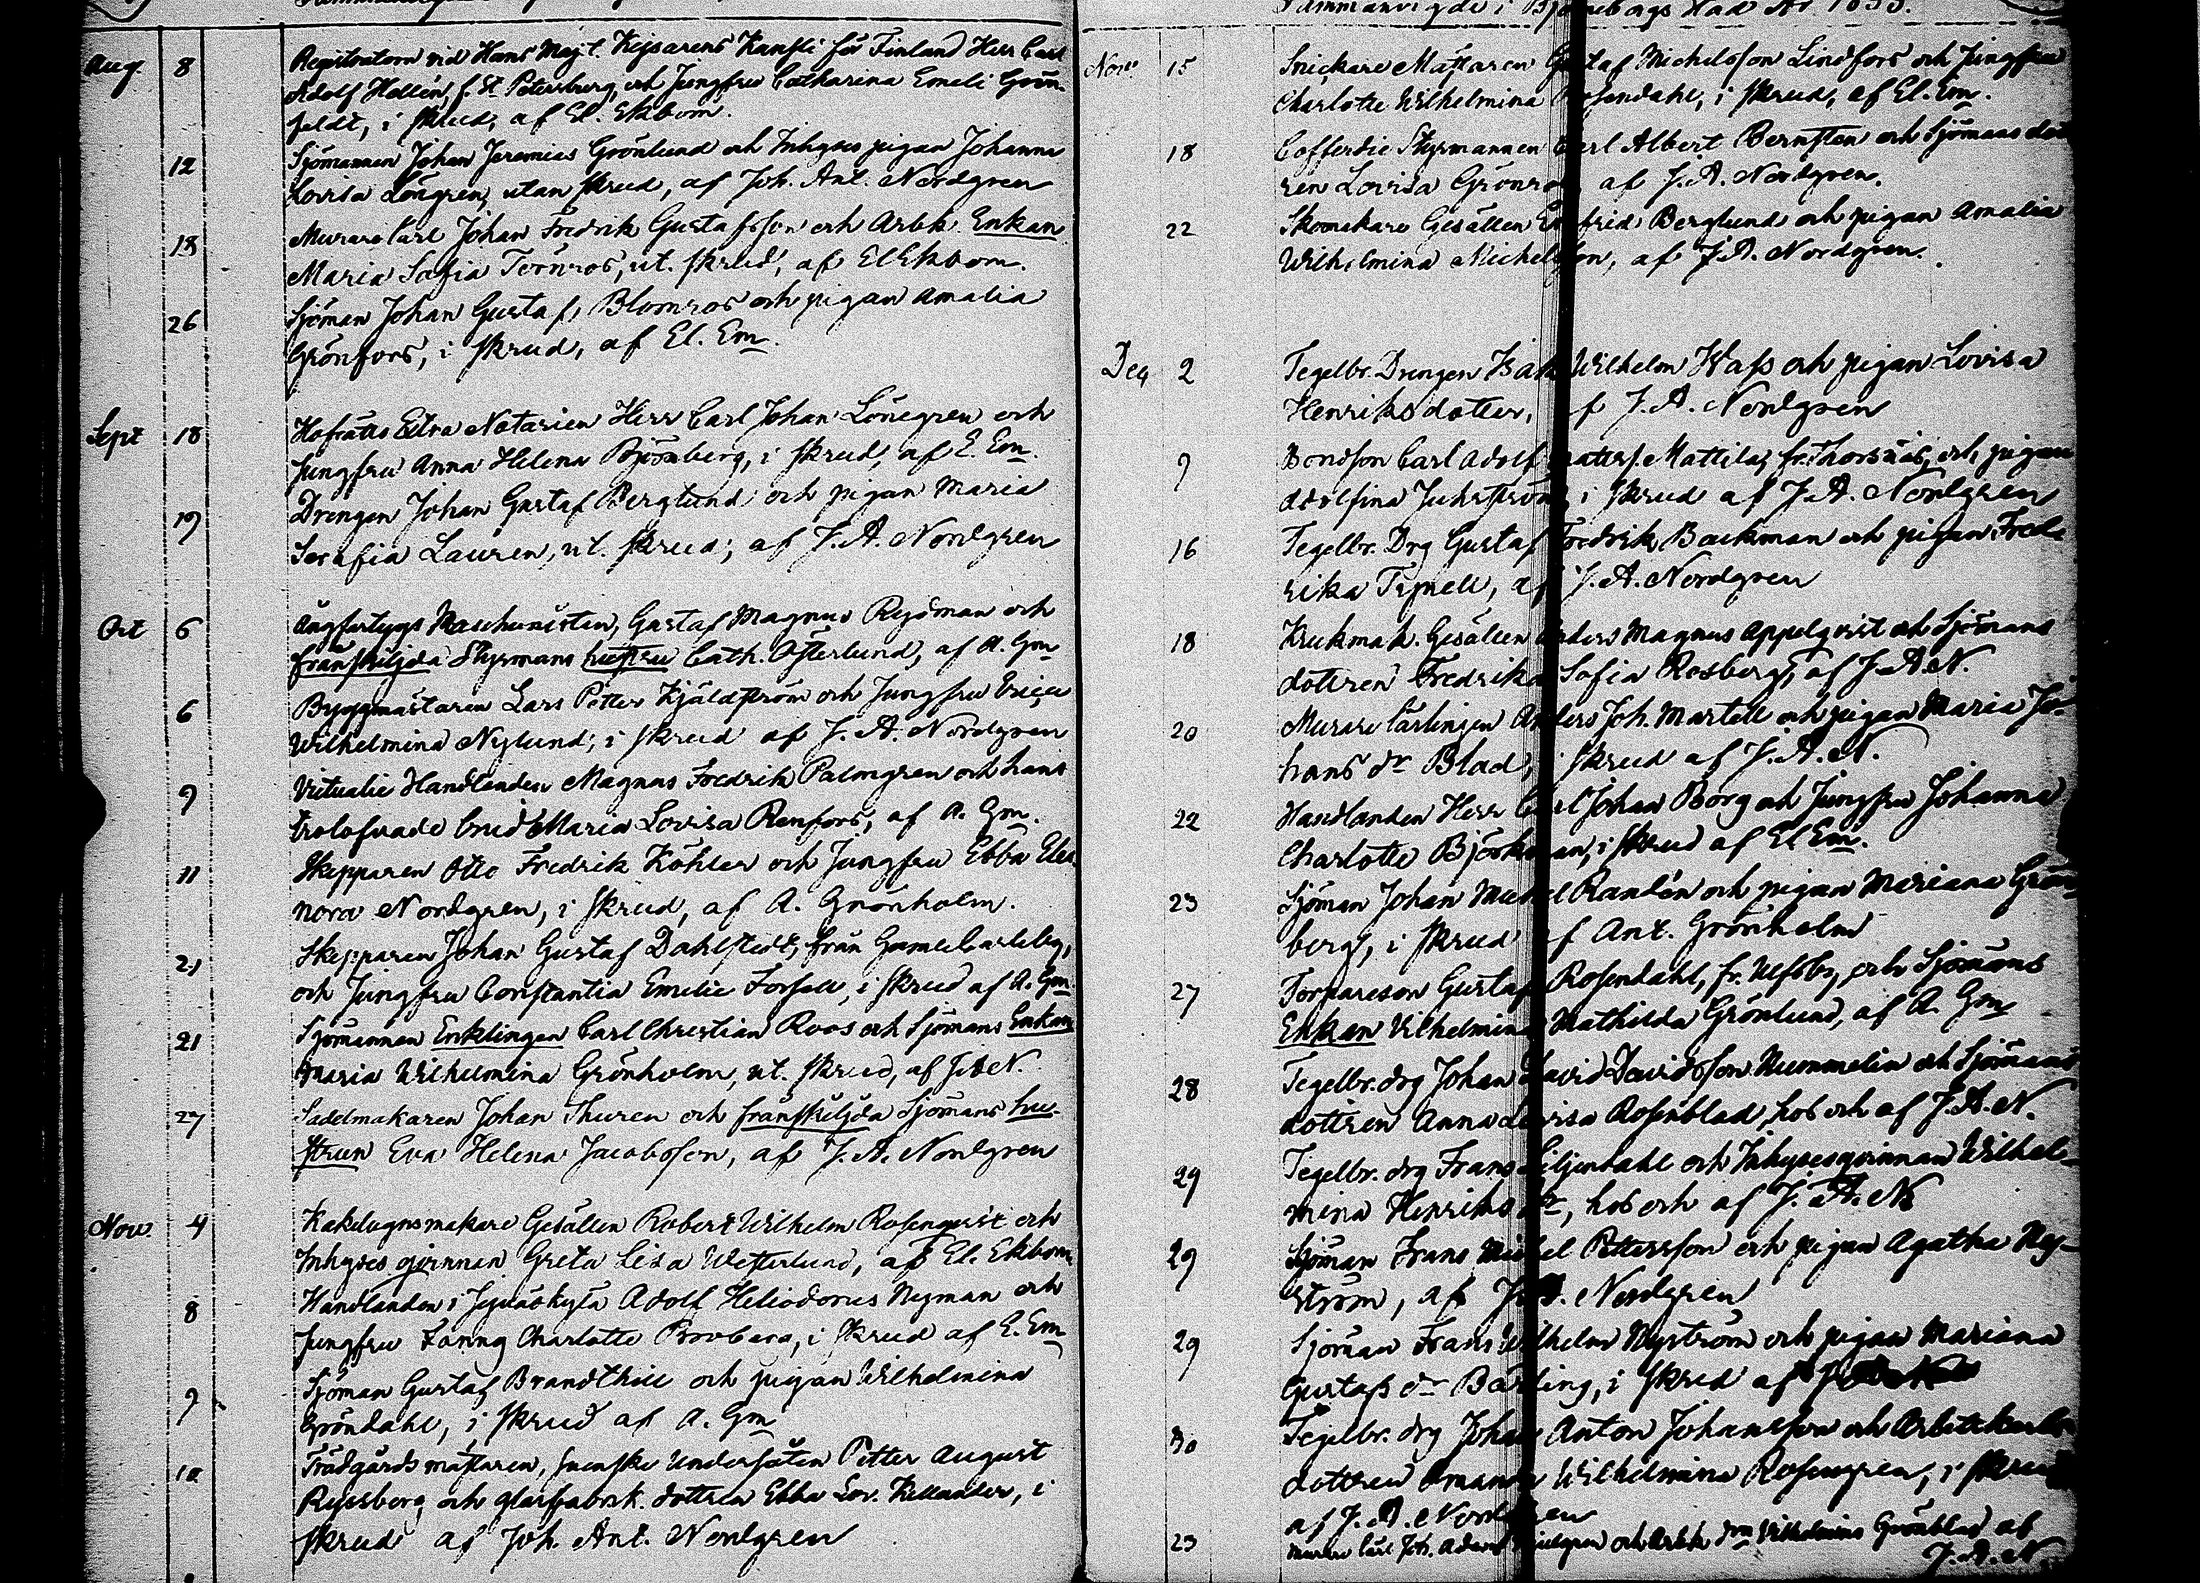 Sammanvigde i Björneborgs stad År 1855.
Aug. 8 Registratorn vid Hans Majt. Kejsarens Kansli för Finland Herr Carl
Adolf Hellén, f. St Petersburg, och Jungfru Catharina Emeli Grön-
feldt, i skrud, af El. Ekbom.
12 Sjömannen Johan Jeremias Grönlund och Inhyses pigan Johanna
Lovisa Löngren, utan skrud, af Joh. Ant. Nordgren
18 Murare Carl Johan Fredrik Gustafsson och Arbk. Enkan
Maria Sofia Törnros, ut. skrud, af El Ekbom.
26 Sjöman Johan Gustaf Blomros och pigan Amalia
Grönfors, i skrud, af El. Em.
Sept 18 Hofrätts Extra Notarien Herr Carl Johan Lönegren och
Jungfru Anna Helena Björnberg, i skrud, af E. Em.
19 Drengen Johan Gustaf Berglund och pigan Maria
Serafia Lauren, ut. skrud, af J. A. Nordgren
Oct 6 Ångfartygs Maschinisten, Gustaf Magnus Rydman och
frånskiljda Styrmans hustru Cath. Österlund, af A. Gm
6 Byggmästaren Lars Petter Kjäldström och Jungfru Erica
Wilhelmina Nylund, i skrud af J. A. Nordgren
9 Victualie Handlanden Magnus Fredrik Palmgren och hans
trolofvade brud Maria Lovisa Renfors, af A. Gm.
11 Skepparen Otto Fredrik Köhler och Jungfru Ebba Eleo
nora Nordgren, i skrud, af A. Grönholm.
21 Skepparen Johan Gustaf Dahlstedt, från Gamlacarleby,
och Jungfru Constantia Emilie Forsell, i skrud af A. Gm.
21 Sjömannen Enklingen Carl Christian Roos och Sjömans Enkan
Maria Wilhelmina Grönholm, ut. skrud, af J A N.
27 Sadelmakaren Johan Thuren och frånskiljda Sjömans hu-
strun Eva Helena Jacobsson, af J. A. Nordgren
Nov. 4 Kakelugnsmakare Gesällen Robert Wilhelm Rosenqvist och
Inhyses qvinnan Greta Lisa Wetterlund, af El. Ekbom
8 Handlanden i Jyväskylä Adolf Heliodorus Nyman och
Jungfru Fanny Charlotta Broberg, i skrud af E. Em
9 Sjöman Gustaf Brandthill och pigan Wilhelmina
Gröndahl, i skrud af A. Gm
10 Trädgårdsmästaren, svenske Undersåten Petter August
Ryssberg och glasfabrik. dottren Ebba Lov. Killander, i
skrud af Joh. Ant. Nordgren
Nov. 15 Snickare Mästaren Gustaf Michelsson Lindfors och Jungfru
Charlotte Wilhelmina Rosendahl, i skrud, af El. Em.
18 Cofferdie Styrmannen Carl Albert Bernsten och Sjömans dott
ren Lovisa Grönros af J. A. Nordgren.
22 Skomakare Gesällen Enfrid Berglund och pigan Amalia
Wilhelmina Michelsson, af J. A. Nordgren.
Dec 2 Tegelbr. Drengen Isak Wilhelm Wass och pigan Lovisa
Henriksdotter, af J. A. Nordgren
9 Bondson Carl Adolf Matts. Mattila, fr. Thorsnäs, och pigan
Adolfina Juhlström i skrud af J. A. Nordgren
16 Tegelbr. Drg Gustaf Fredrik Backman och pigan Fred-
rika Tejnell, af J. A. Nordgren
18 Krukmak. Gesällen Anders Magnus Appelqvist och Sjömans
dottren Fredrika Sofia Rosberg, af J. A. N.
20 Murare Lärlingen Anders Joh. Martell och pigan Maria Jo-
hans dr Blad, i skrud af J. A. N.
22 Handlanden Herr Carl Johan Borg och Jungfru Johanna
Charlotte Björkman, i skrud af El Em.
23 Sjöman Johan Michel Randén och pigan Mariana Grön-
berg, i skrud af Ant. Grönholm
27 Torpareson Gustaf Rosendahl, fr. Ulfsby, och Sjömans
Enkan Vilhelmina Mathilda Grönlund, af A. Gm
28 Tegelbr. drg Johan David Davidsson Nummelin och Sjömans
dottren Anna Lovisa Rosenblad, hos och af J. A. N.
29 Tegelbr. drg Frans Liljendahl och Inhysesqvinnan Wilhel-
mina Henriks dr, hos och af J. A. N
29 Sjöman Frans Michel Pettersson och pigan Agatha Ny-
ström, af J. A. Nordgren
29 Sjöman Frans Wilhelm Nyström och pigan Mariana
Gustafs dr Barling, i skrud af J A N
30 Tegelbr. drg Johan Anton Johansson och Arbetskarls
dottren Amanda Wilhelmina Rosengren, i skrud
af J. A. Nordgren
23 Murare Carl Joh. Adam och Arbk. drn Vilhelmina Grönblad af
J. A. N.